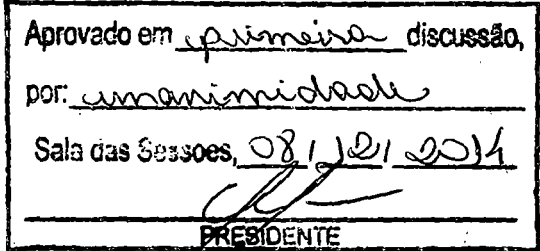 Aprovado em primeira discussão,
por: unanimidade
Sala das Sessoes, 08/12/2014
PRESIDENTE